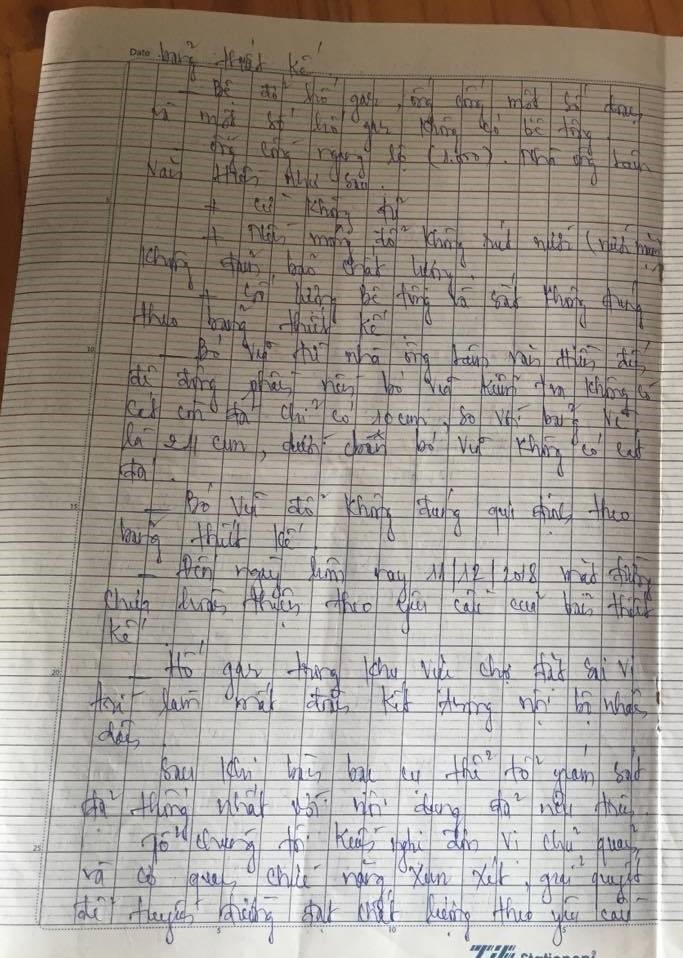 Date bảng thiết kế.
- Bê đổ hố gas, ống cống một số đoạn,
và một số hố gas không có bê tông
- ống cống ngang lộ (1.500). Nhà ông
Văn Thân như sau.
+ cừ không đủ
+ nền móng đổ không hút nước (nước
không đảm bảo chất lượng.
+ Số lượng Bê tông và sắt không đúng
theo bảng thiết kế
- Bó vỉa từ nhà ông văn
di động phần nền bó vỉa kiểm tra không có
cát còn đá chỉ có 10 cm, so với bảng vẽ
là 24 cm, dưới chân bó vỉa không có cát
đá.
- Bó vỉa đổ không đúng qui định theo
bảng thiết kế
- Đến ngày hôm nay 11/12/2018 mặt đường
chưa hoàn thiện theo yêu cầu của bản thiết
kế
- Hố gas trong khu vực chợ đặt sai vị
trí làm mất đoàn kết trong nội bộ nhân
dân
Sau khi bàn bạc cụ thể tổ giám sát
đã thống nhất với nội dung đã nêu trên.
Tổ chúng tôi kiến nghị đơn vị chủ quan,
và cơ quan chức năng xem xét, giải quyết
để tuyến đường đạt chất lượng theo yêu cầu
5 10 15 20 25
5 10 5
TiTi Stationery